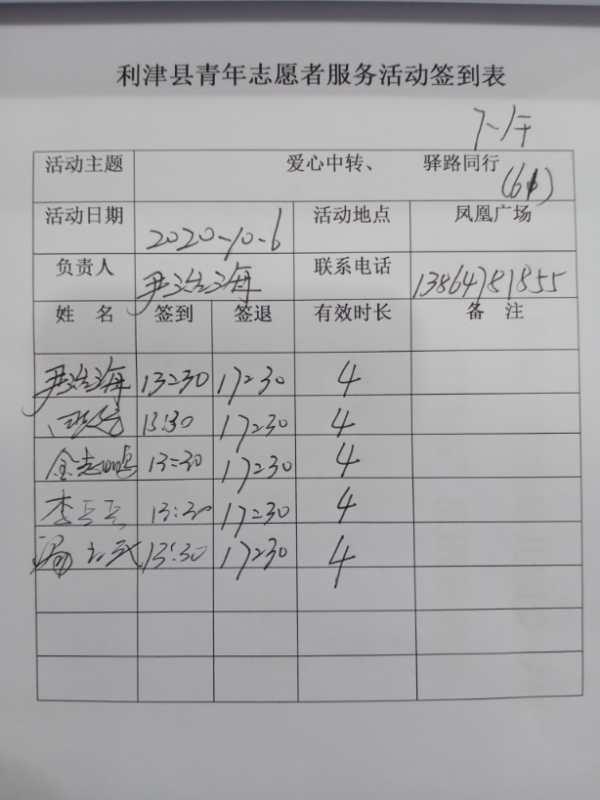 利津县青年志愿者服务活动签到表
活动主题 爱心中转、 驿路同行
活动日期 2020-10-6 活动地点 凤凰广场
负责人 尹海 联系电话 13864781855
姓 名 签到 签退 有效时长 备 注
尹海 13:30 17:30 4
13:30 17:30 4
金志鸣 13:30 17:30 4
李 13:30 17:30 4
13:30 17:30 4